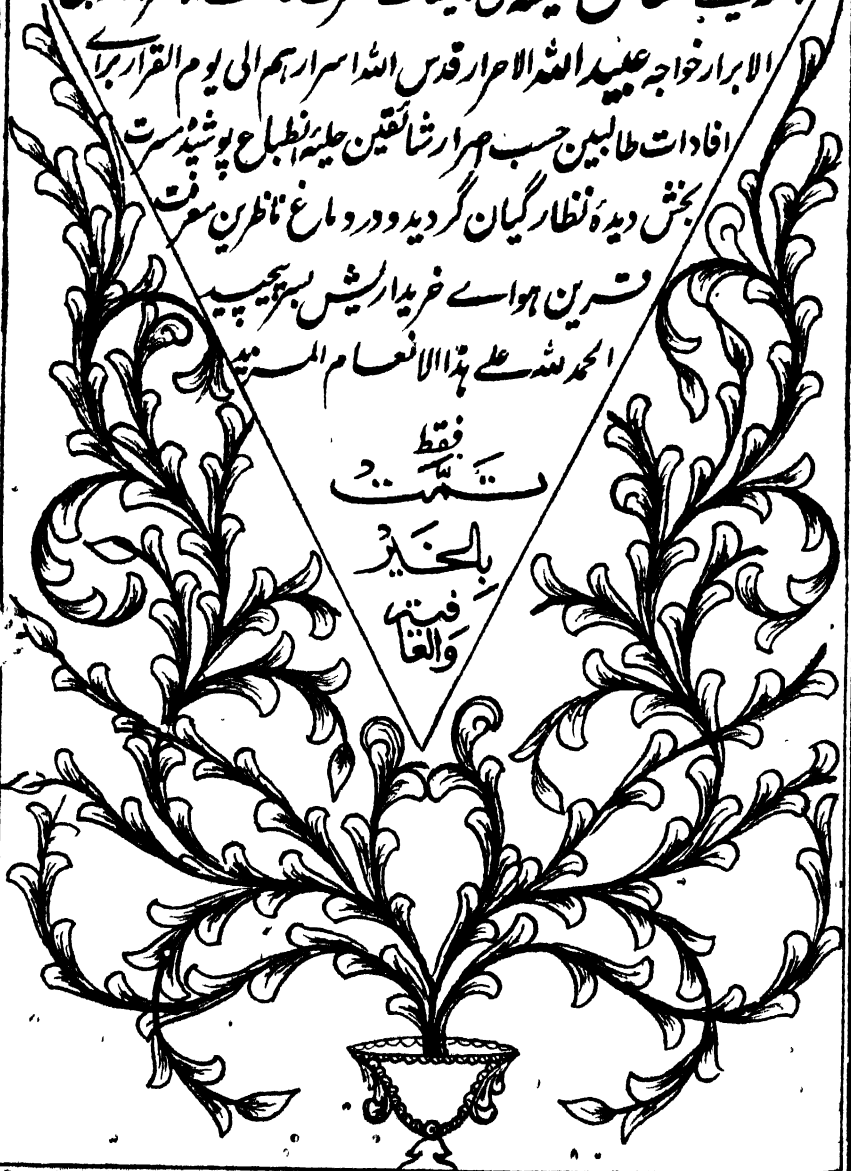 الابرار خواجہ عبید اللہ الاحرار قدس اللہ اسرارہم الی یوم القرار برای
افادات طالبین حسب اصرار شائقین حلیۂ انطباع پوشیدہ مسرت
بخش دیدۂ نظارگیان گردید و در دماغ ناظرین معرفت
قرین ہواے خریداریش بسر پیچید
الحمد للہ علے ہذا الانعام المزید
فقط
تَمَّتْ
بِالخَیْرِ
وَالعَافیتہ